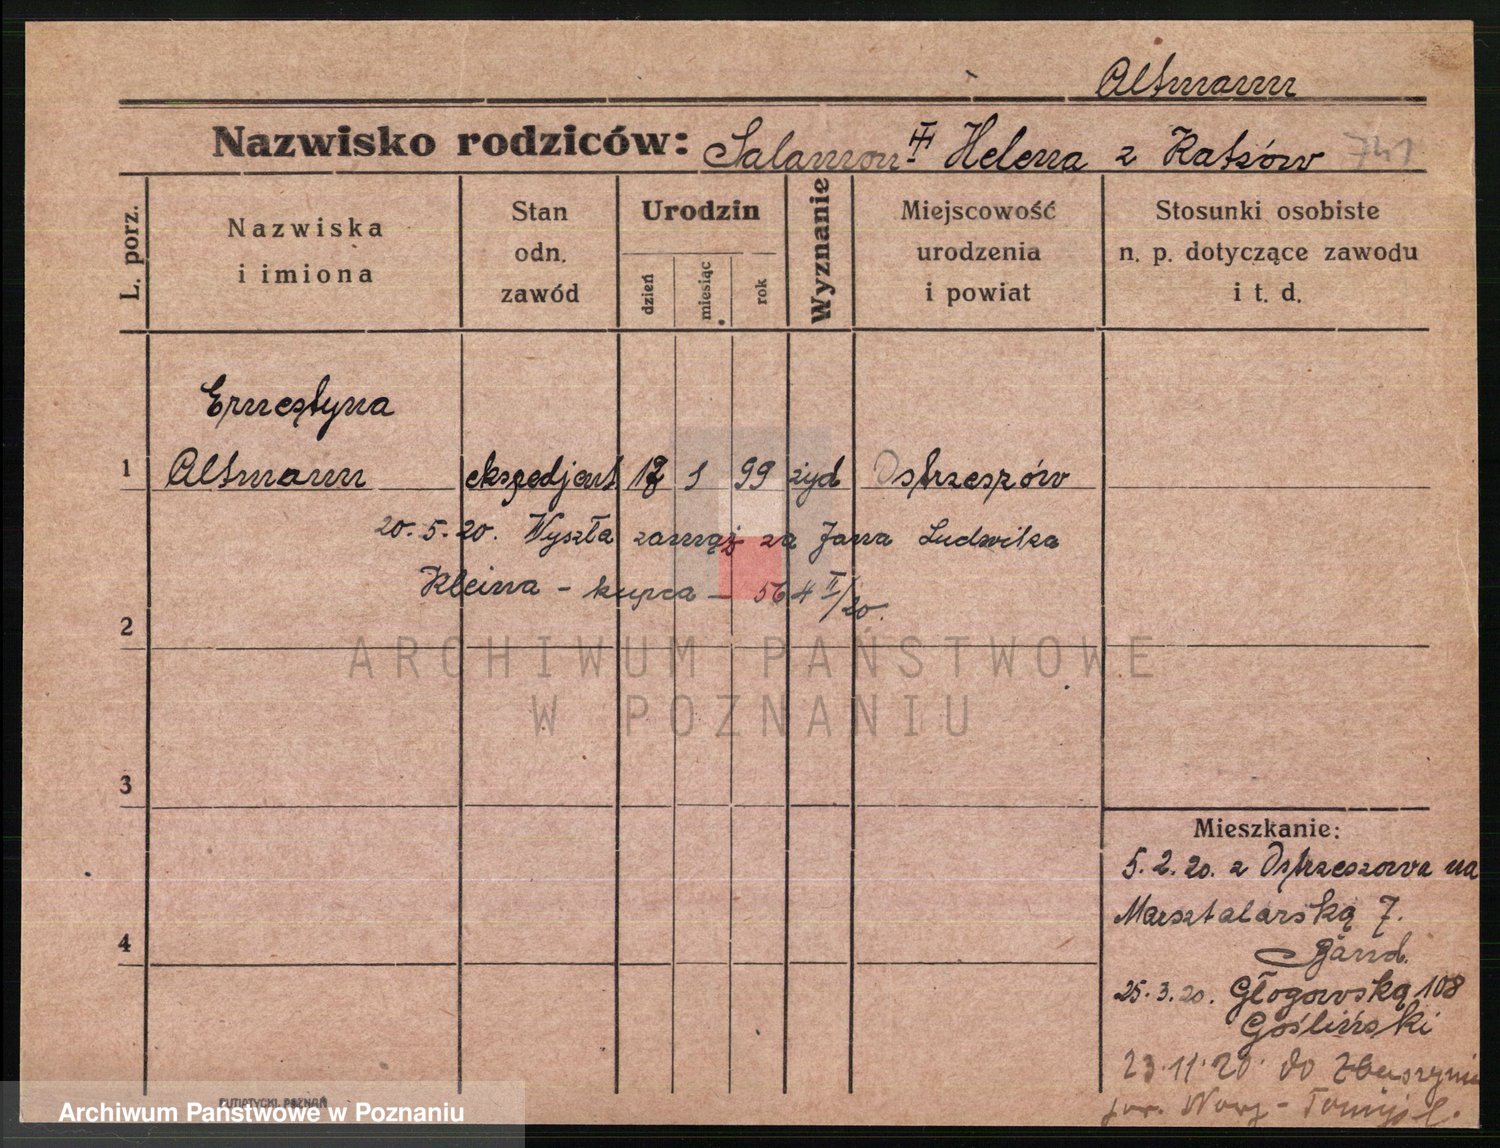 Altmann
Nazwisko rodziców: Salamon Helena z Katzów 741
L. porz.
Nazwiska i imiona
Stan odn. zawód
Urodzin
dzień
miesiąc
rok
Wyznanie
Miejscowość urodzenia i powiat
Stosunki osobiste n. p. dotyczące zawodu i t. d.
Ernestyna
1 Altmann ekspedjent 1 99 żyd Ostrzeszów
20.5.20. Wyszła zamąż za Jana Ludwika
Kleina - kupca - 564 II/20.
2
3
4
Mieszkanie:
5.2.20. z Ostrzeszowa na
Marsztalarską 7.
25.3.20. Głogowską 108
Gośliński
23.11.20. do Zbąszynia
pow. Nowy-Tomyśl.
ARCHIWUM PAŃSTWOWE
W POZNANIU
PUTIATYCKI, POZNAŃ
Archiwum Państwowe w Poznaniu